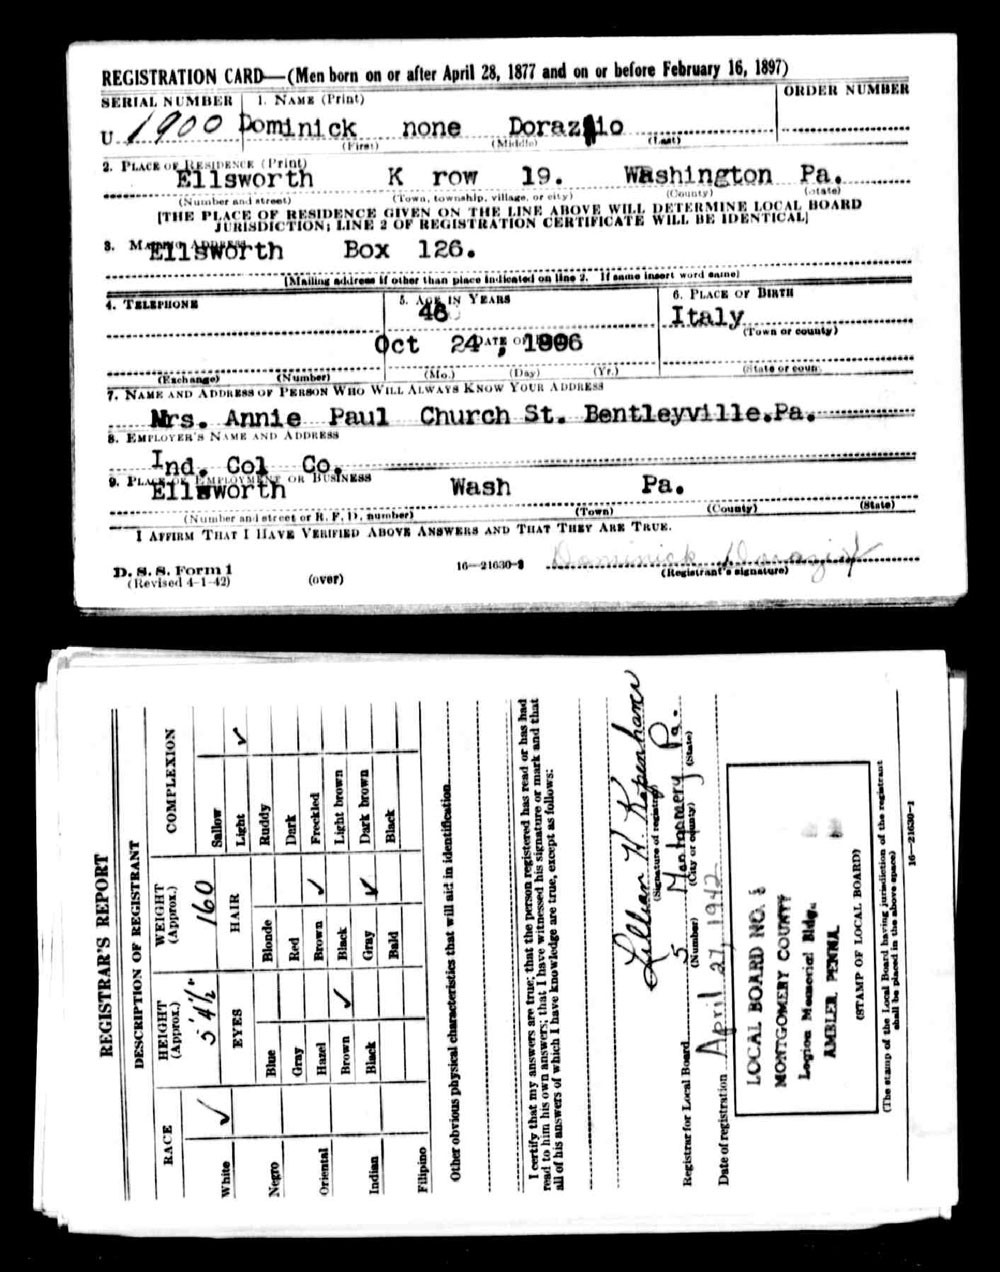 REGISTRATION CARD—(Men born on or after April 28, 1877 and on or before February 16, 1897)
SERIAL NUMBER 1. NAME (Print) ORDER NUMBER
U 1900 Dominick none Dorazio
(First) (Middle) (Last)
2. PLACE OF RESIDENCE (Print)
Ellsworth K row 19. Washington Pa.
(Number and street) (Town, township, village, or city) (County) (State)
[THE PLACE OF RESIDENCE GIVEN ON THE LINE ABOVE WILL DETERMINE LOCAL BOARD
JURISDICTION; LINE 2 OF REGISTRATION CERTIFICATE WILL BE IDENTICAL]
3. MAILING ADDRESS
Ellsworth Box 126.
[Mailing address if other than place indicated on line 2. If same insert word same]
4. TELEPHONE 5. AGE IN YEARS 6. PLACE OF BIRTH
46 Italy
(Town or county)
DATE OF
Oct 24, 1896
(Exchange) (Number) (Mo.) (Day) (Yr.) (State or coun
7. NAME AND ADDRESS OF PERSON WHO WILL ALWAYS KNOW YOUR ADDRESS
Mrs. Annie Paul Church St. Bentleyville.Pa.
8. EMPLOYER'S NAME AND ADDRESS
Ind. Col Co.
9. PLACE OF EMPLOYMENT OR BUSINESS
Ellsworth Wash Pa.
(Number and street or R. F. D. number) (Town) (County) (State)
I AFFIRM THAT I HAVE VERIFIED ABOVE ANSWERS AND THAT THEY ARE TRUE.
D. S. S. Form 1
(Revised 4-1-42) (over) 16—21630-2 Dominick Dorazio
(Registrant's signature)
REGISTRAR'S REPORT
DESCRIPTION OF REGISTRANT
RACE HEIGHT (Approx.) WEIGHT (Approx.) COMPLEXION
5'4½" 160
White ✓ Sallow
EYES HAIR Light ✓
Negro Blue Blonde Ruddy
Gray Red Dark
Oriental Hazel Brown ✓ Freckled
Brown ✓ Black Light brown
Indian Black Gray ✓ Dark brown
Bald Black
Filipino
Other obvious physical characteristics that will aid in identification
I certify that my answers are true; that the person registered has read or has had
read to him his own answers; that I have witnessed his signature or mark and that
all of his answers of which I have knowledge are true, except as follows:
Lillian H. Kopenhaver
(Signature of registrar)
Registrar for Local Board 5 Montgomery Pa.
(Number) (City or county) (State)
Date of registration April 27, 1942
LOCAL BOARD NO.
MONTGOMERY COUNTY
Legion Memorial Bldg.
AMBLER, PENNA.
(STAMP OF LOCAL BOARD)
(The stamp of the Local Board having jurisdiction of the registrant
shall be placed in the above space)
16—21630-1